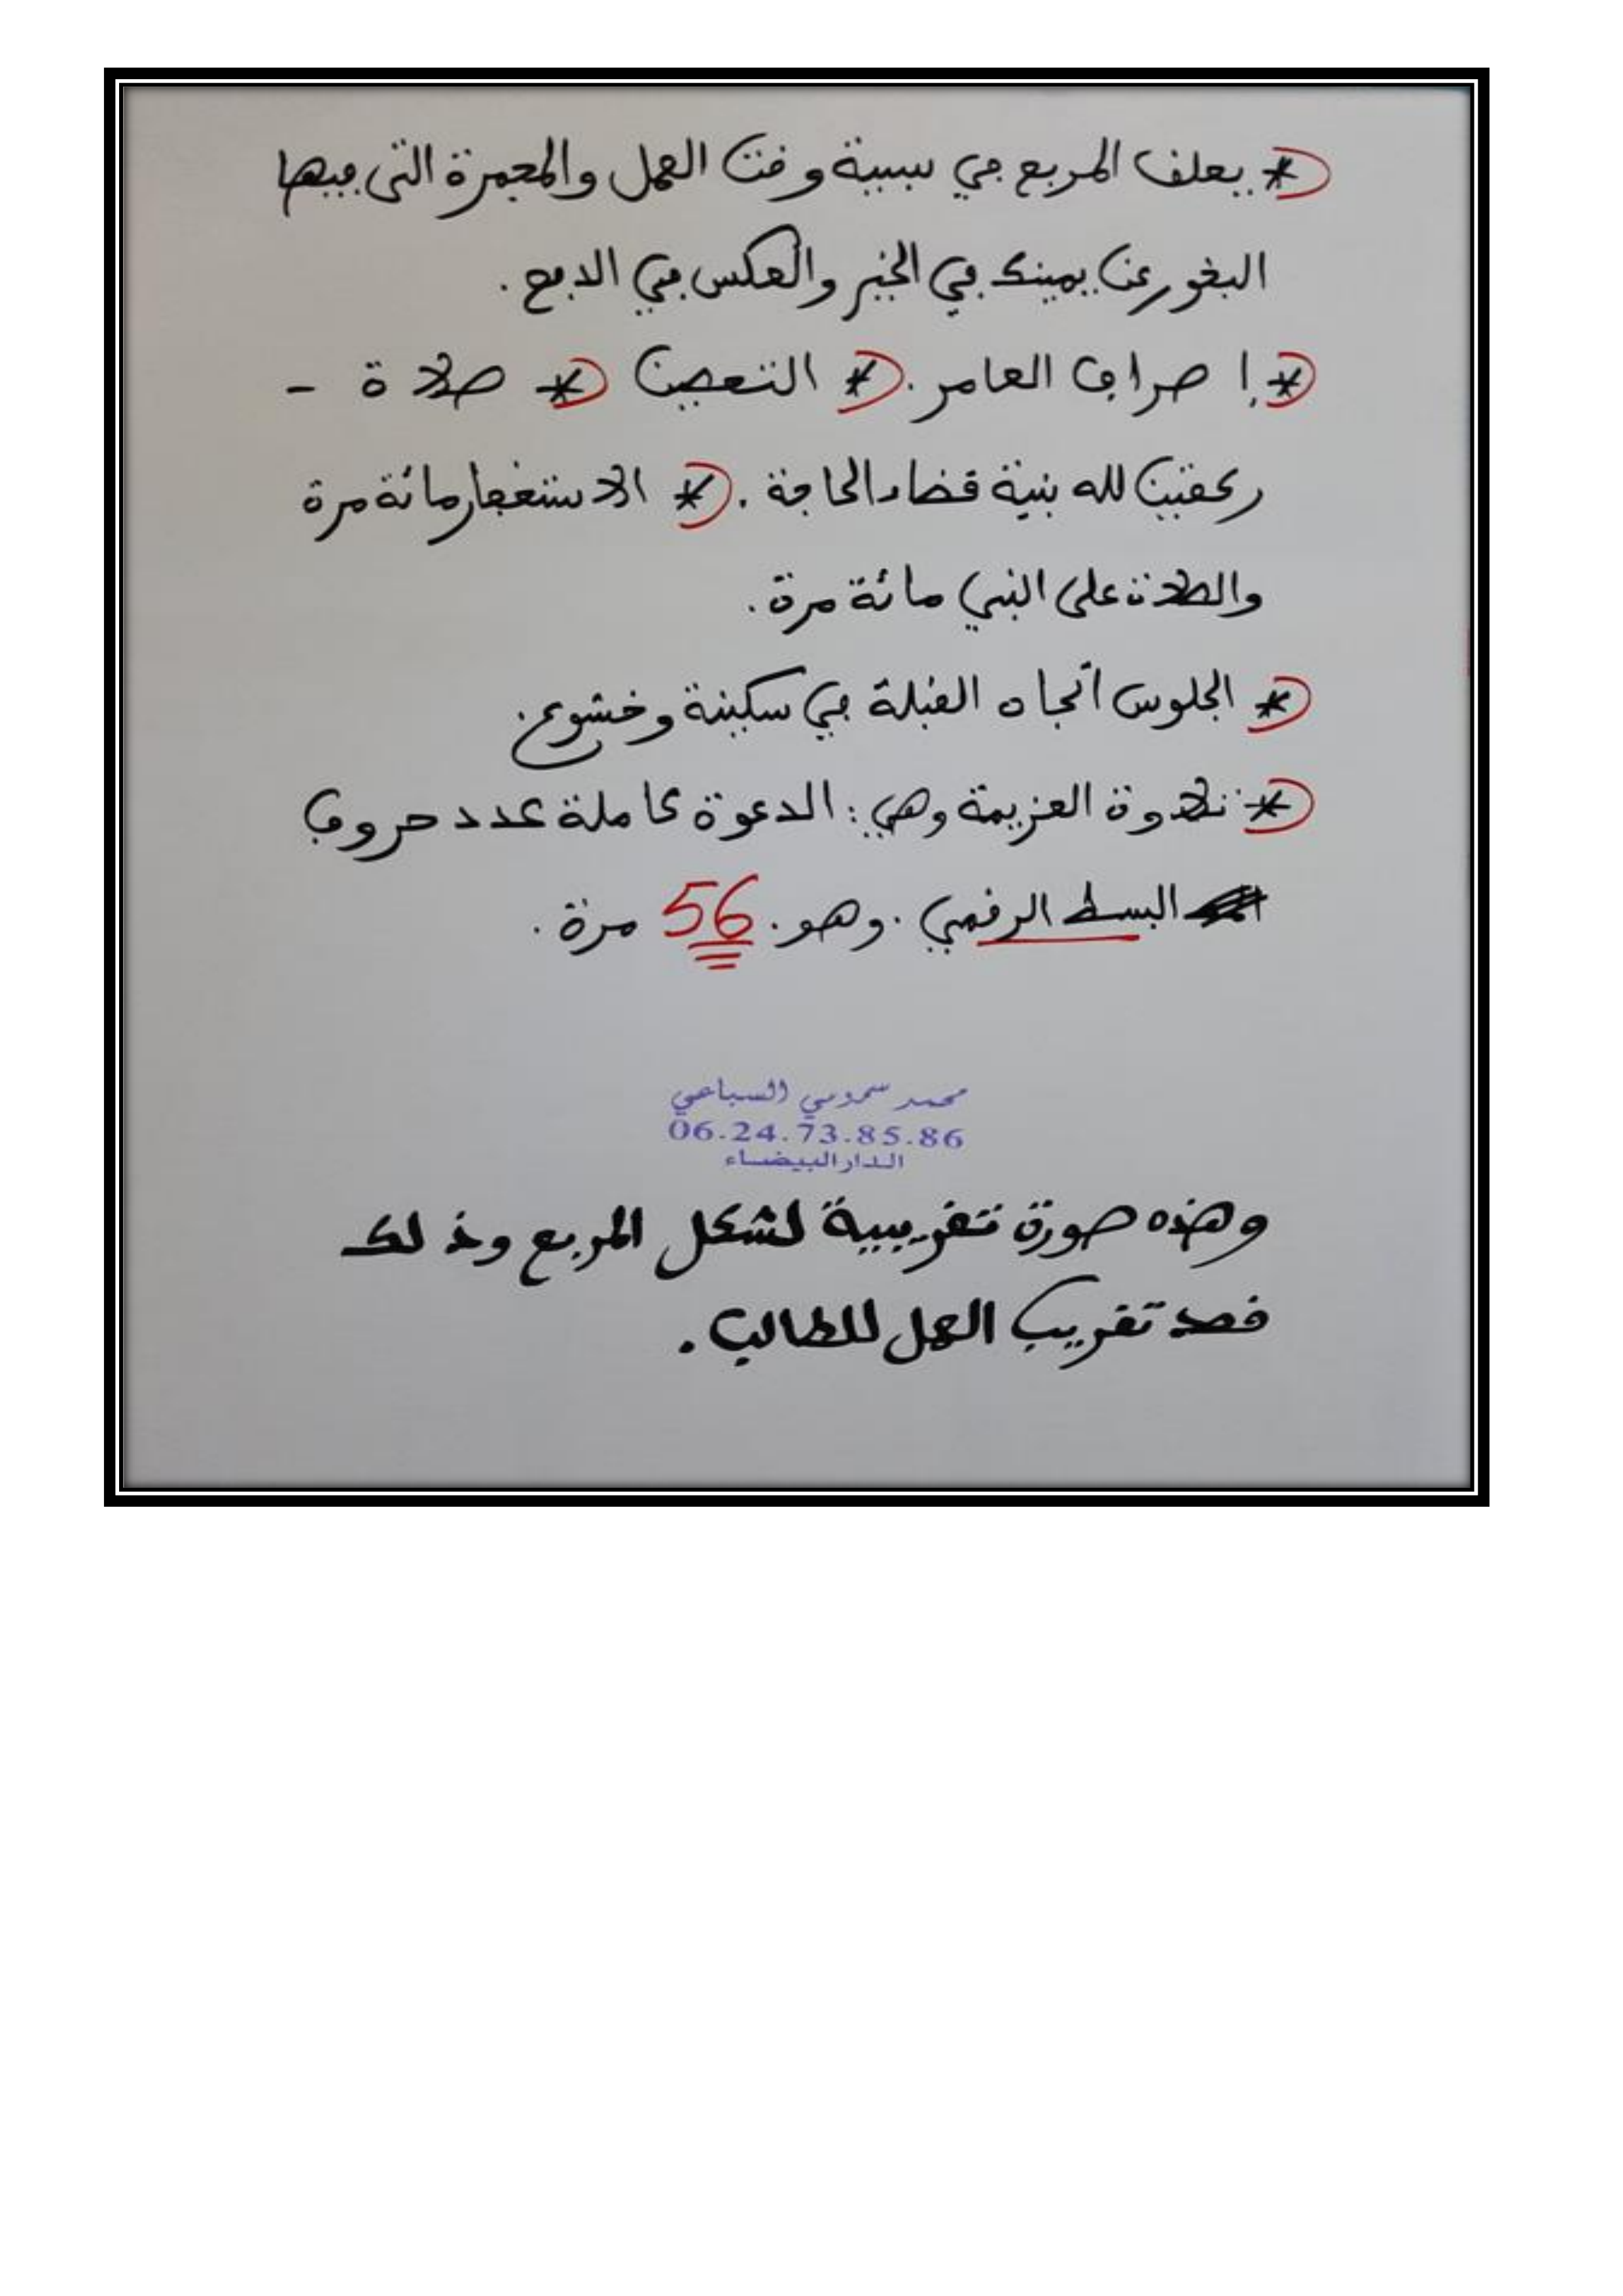 * يعلق المربع في سيبية وقت العمل والمجمرة التي فيها
البخور عن يمينك في الخير والعكس في الدفع .
* إصراف العامر . * التحصين * صلاة -
ركعتين لله بنية قضاء الحاجة . * الاستغفار مائة مرة
والصلاة على النبي مائة مرة .
* الجلوس اتجاه القبلة في سكينة وخشوع .
* تلاوة العزيمة وهي : الدعوة كاملة عدد حروف
البسط الرقمي . وهو . 56 مرة .
محمد سمومي السباعي
06.24.73.85.86
الدار البيضاء
وهذه صورة تقريبية لشكل المربع وذلك
قصد تقريب العمل للطالب .